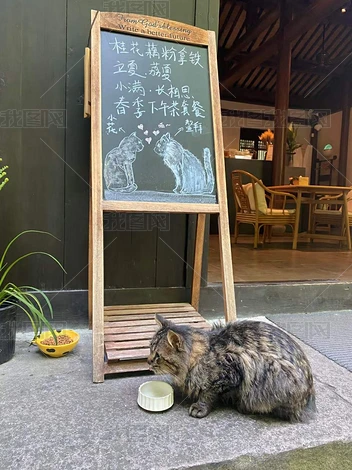 I am God's blessing
Write a better future
桂花藕粉拿铁
立夏·荔
小满·长相思
春季下午茶套餐
小花